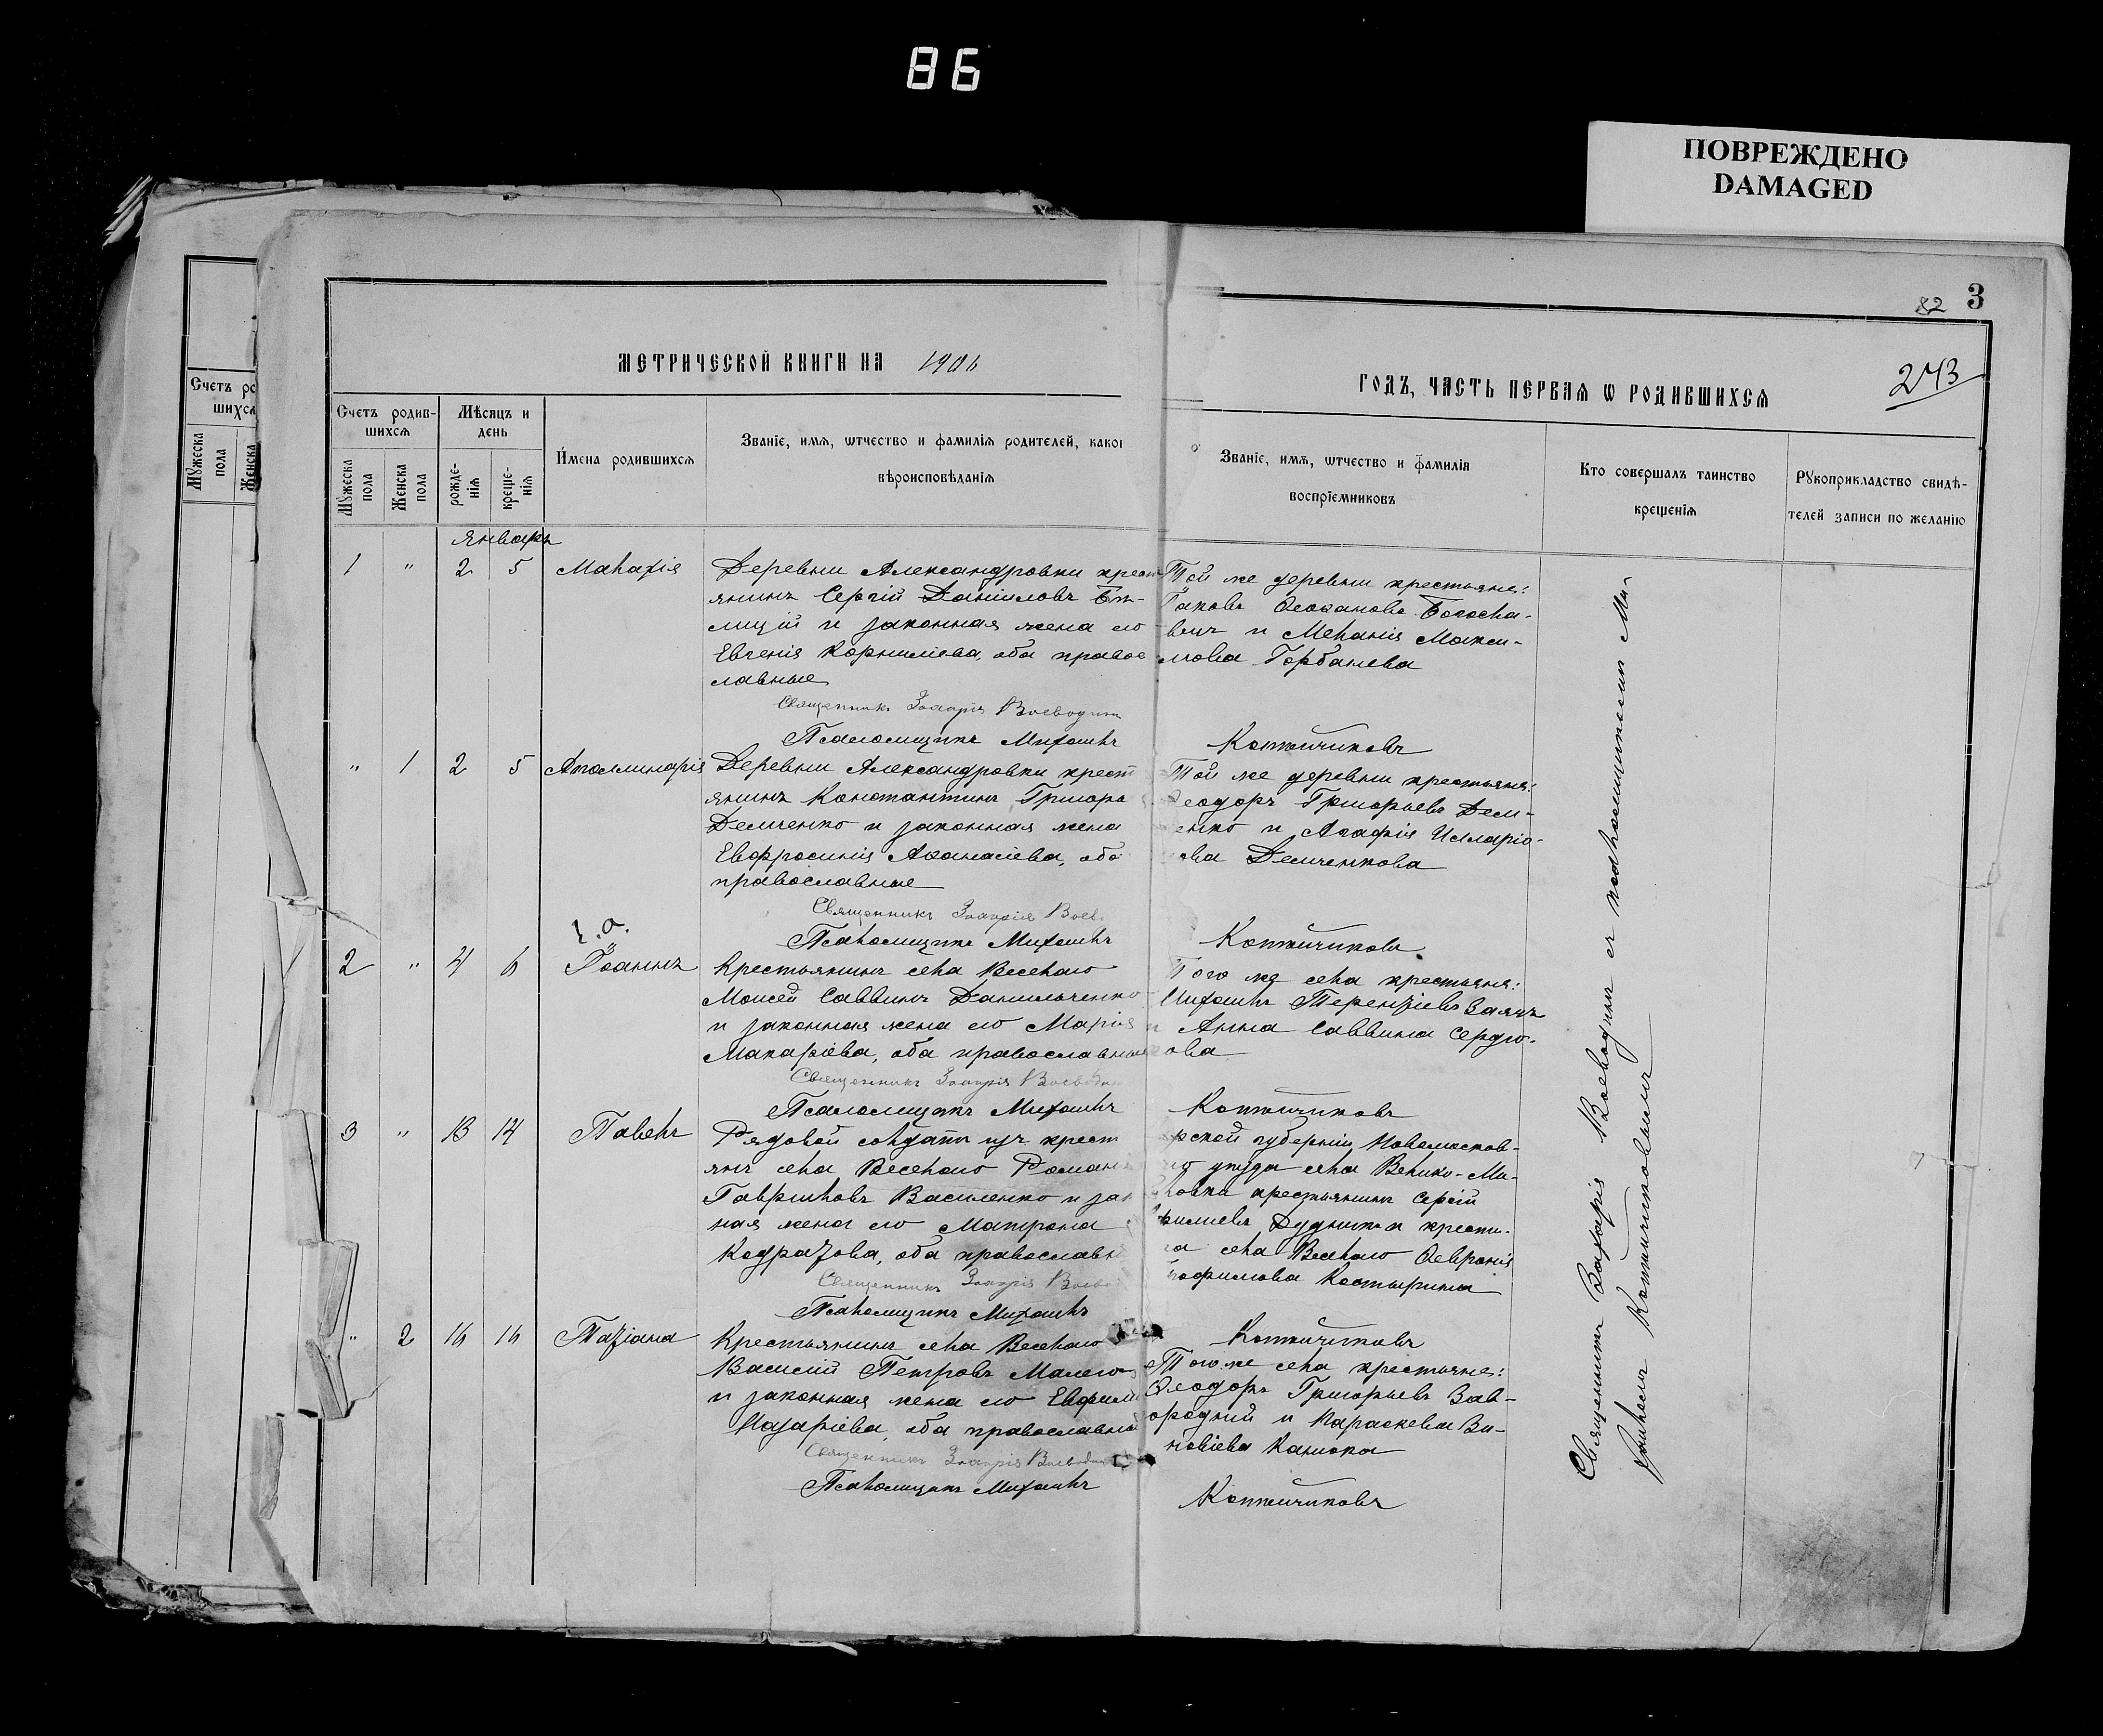 86
ПОВРЕЖДЕНО
DAMAGED
82 3
243
МЕТРИЧЕСКОЙ КНИГИ НА 1906
ГОДЪ, ЧАСТЬ ПЕРВАЯ Ѡ РОДИВШИХСЯ
Счетъ ро
шихся
Мꙋжеска пола
Женска
Счетъ родив-
шихсѧ
Мѣсяцъ и
день
Мꙋжеска пола
Женска пола
рожде-
нія
креще-
нія
Имена родившихсѧ
Званіе, имѧ, ѡтчество и фамилія родителей, каког
вѣроисповѣданія
о
Званіе, имѧ, ѡтчество и фамилія
воспріємниковъ
Кто совершалъ таинство
крещенія
Рꙋкоприкладство свидѣ-
телей записи по желанію
Январь
1 " 2 5 Малахія
Деревни Александровки крест
янинъ Сергій Даніиловъ
и законная жена его
Евгенія Корниліева, оба право
славные
Священникъ Захарія Воеводин
Псаломщикъ Михаилъ
Той же деревни крестьяне:
Іаковъ Ѳеофановъ Богосла-
вецъ и Меланія Макси-
мова Горбанева
Коптичиковъ
" 1 2 5 Аполлинарія
Деревни Александровки крест
янинъ Константинъ Григорь
Демченко и законная жена
Евфросинія Аѳанасіева, оба
православные
Священникъ Захарія Воев
Псаломщикъ Михаилъ
Той же деревни крестьяне:
Ѳеодоръ Григорьевъ Дем-
ченко и Агафія Илларіо-
нова Демченкова
Коптичиковъ
2 " 4 6 Іоаннъ
Крестьянинъ села Веселаго
Моисей Саввинъ Данильченко
и законная жена его Марія
Макаріева, оба православные
Священникъ Захарія Воеводин
Псаломщикъ Михаилъ
Того же села крестьяне:
Михаилъ Терентіевъ Заяцъ
и Анна Саввина Сердю-
кова
Коптичиковъ
3 " 13 14 Павелъ
Рядовой солдатъ изъ крест
янъ села Веселаго Романъ
Гавриловъ Василенко и зак
ная жена его Матрона
Кодратова, оба православн
Священникъ Захарія Воево
Псаломщикъ Михаилъ
губерніи Новомосков-
уѣзда села Велико-Ми-
крестьянинъ Сергій
Дудникъ и крестья-
села Веселаго Ѳевронія
Костырина
Коптичиковъ
" 2 16 16 Татіана
Крестьянинъ села Веселаго
Василій Петровъ
и законная жена его Евфимі
Назаріева, оба православны
Священникъ Захарія Воеводин
Псаломщикъ Михаилъ
Того же села крестьяне:
Ѳеодоръ Григорьевъ Зав-
ородній и Параскева Зи-
новіева Канюка
Коптичиковъ
Священникъ Захарія Воеводинъ съ псаломщикомъ Ми-
хаиломъ Коптичиковымъ